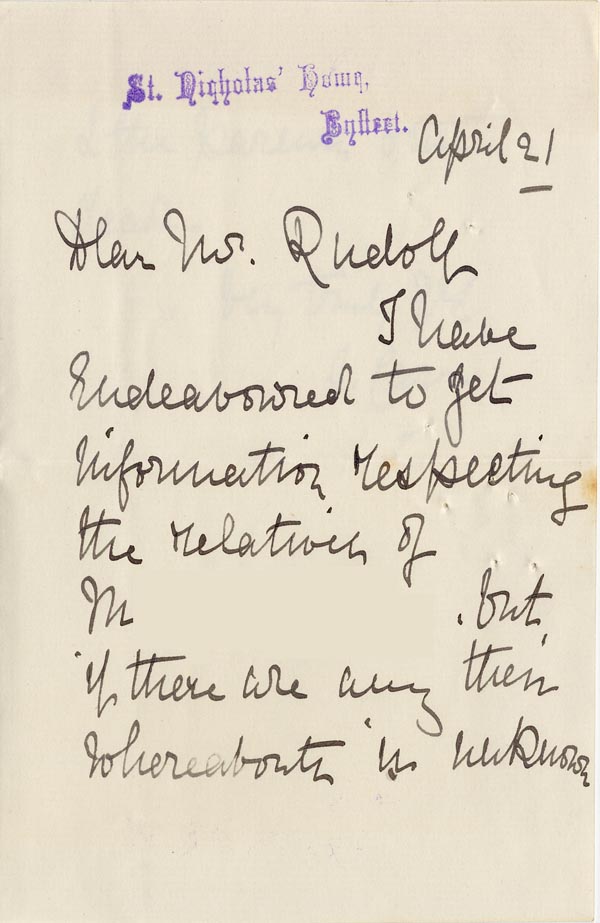 St. Nicholas' Home,
Byfleet.
April 21
Dear Mr. Rudolf
I have
Endeavoured to get
information respecting
the relatives of
M
. but,
if there are any their
whereabouts is unknown